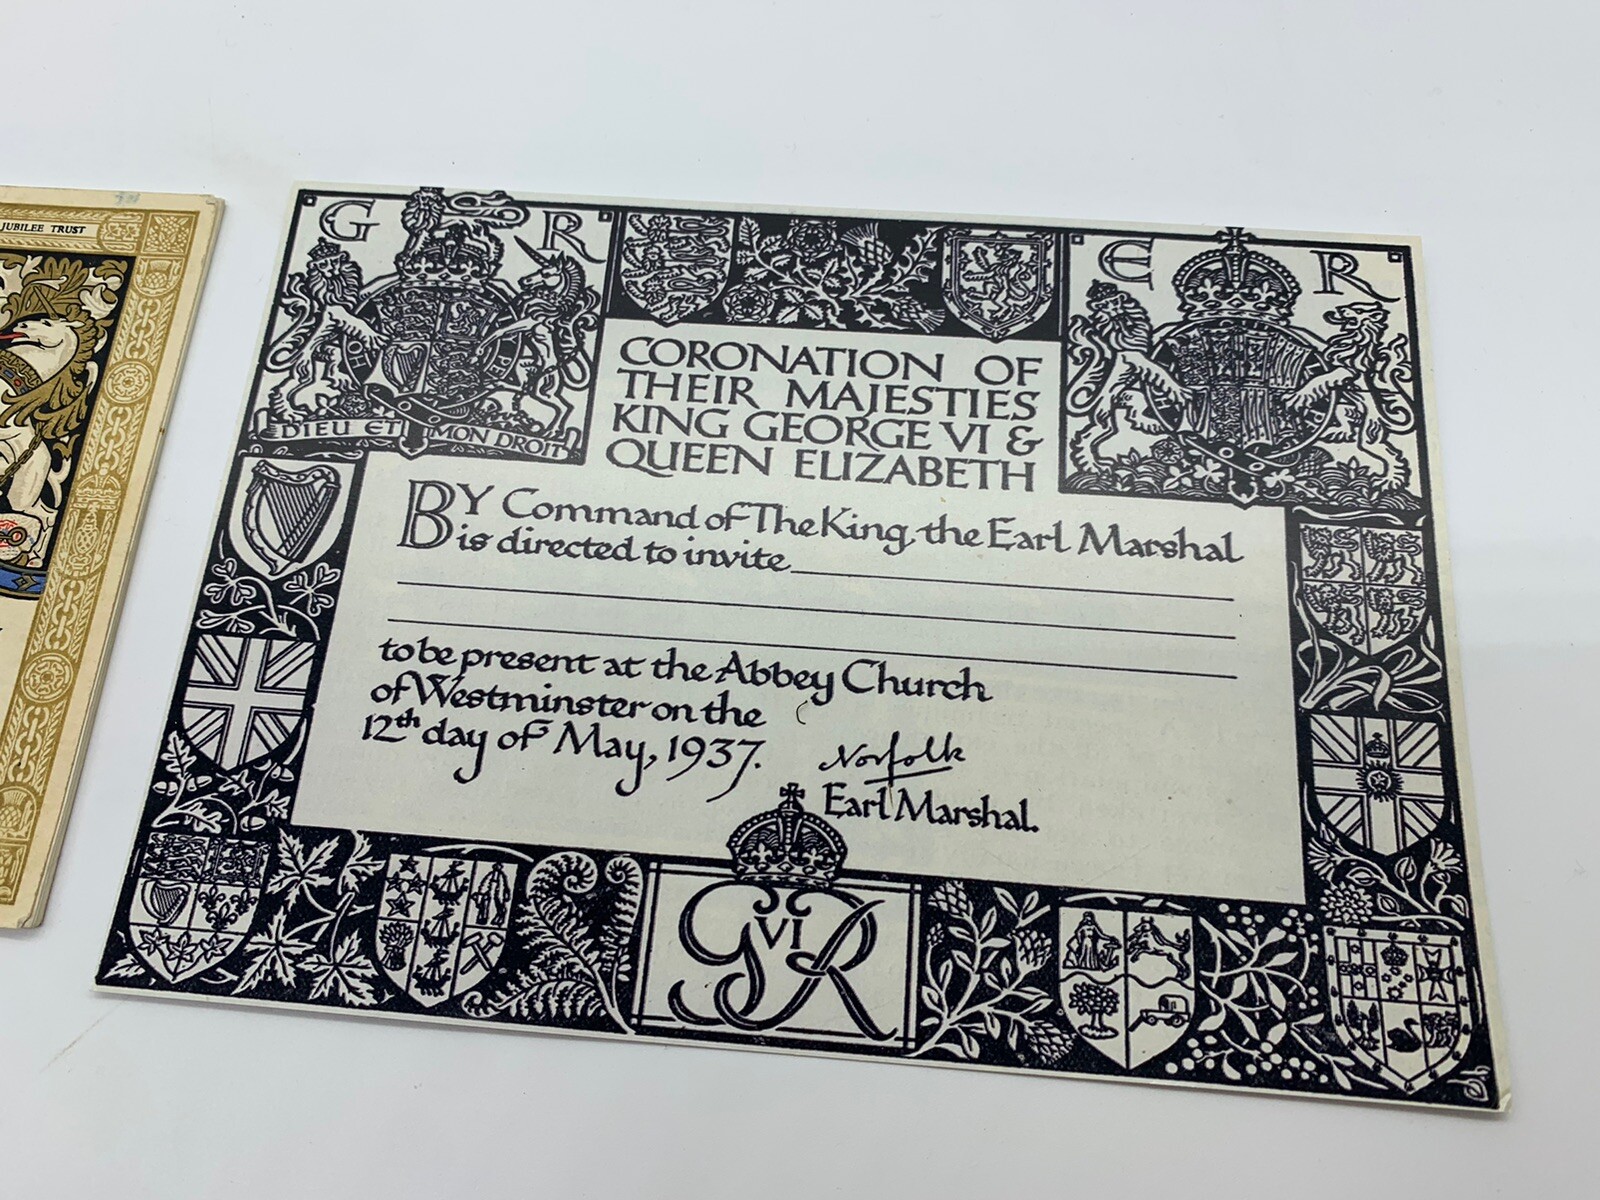 JUBILEE TRUST
G R
E R
DIEU ET MON DROIT
CORONATION OF
THEIR MAJESTIES
KING GEORGE VI &
QUEEN ELIZABETH
BY Command of The King, the Earl Marshal
is directed to invite
to be present at the Abbey Church
of Westminster on the
12th day of May, 1937.
Norfolk
Earl Marshal.
G VI R